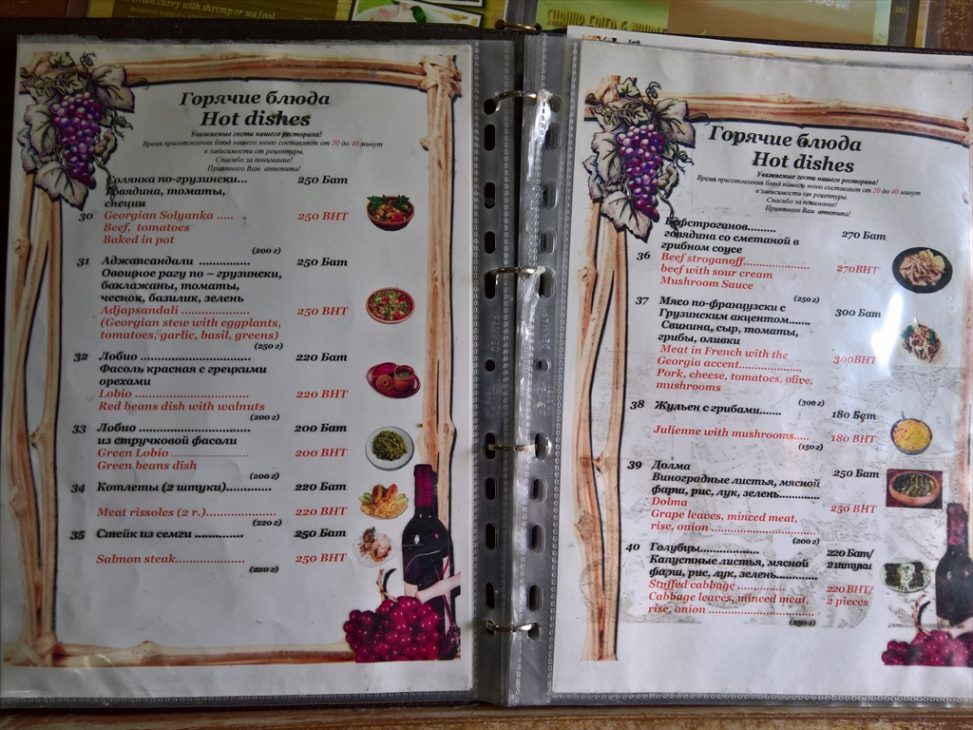 Green curry with shrimp or sea food
Горячие блюда
Hot dishes
Уважаемые гости нашего ресторана!
Время приготовления блюд нашего меню составляет от 20 до 40 минут
в зависимости от рецептуры.
Спасибо за понимание!
Приятного Вам аппетита!
Солянка по-грузински... 250 Бат
говядина, томаты,
специи
30 Georgian Solyanka ..... 250 BHT
Beef, tomatoes
Baked in pot
(200 г)
31 Аджапсандали ............... 250 Бат
Овощное рагу по – грузински,
баклажаны, томаты,
чеснок, базилик, зелень
Adjapsandali .................. 250 BHT
(Georgian stew with eggplants,
tomatoes, garlic, basil, greens)
(250 г)
32 Лобио .............................. 220 Бат
Фасоль красная с грецкими
орехами
Lobio ............................. 220 BHT
Red beans dish with walnuts
(200 г)
33 Лобио .............................. 200 Бат
из стручковой фасоли
Green Lobio ........................ 200 BHT
Green beans dish
(200 г)
34 Котлеты (2 штуки)............. 220 Бат
Meat rissoles (2 r.)..................... 220 BHT
(220 г)
35 Стейк из семги .............. 250 Бат
Salmon steak..................... 250 BHT
(220 г)
Горячие блюда
Hot dishes
Уважаемые гости нашего ресторана!
Время приготовления блюд нашего меню составляет от 20 до 40 минут
в зависимости от рецептуры.
Спасибо за понимание!
Приятного Вам аппетита!
Бефстроганов......... 270 Бат
говядина со сметаной в
грибном соусе
36 Beef stroganoff.................... 270BHT
beef with sour cream
Mushroom Sauce
(250 г)
37 Мясо по-французски с 300 Бат
Грузинским акцентом.......
Свинина, сыр, томаты,
грибы, оливки
Meat in French with the 300BHT
Georgia accent...................
Pork, cheese, tomatoes, olive,
mushrooms
(300 г)
38 Жульен с грибами....... 180 Бат
Julienne with mushrooms..... 180 BHT
(150 г)
39 Долма 250 Бат
Виноградные листья, мясной
фарш, рис, лук, зелень............
Dolma 250 BHT
Grape leaves, minced meat,
rise, onion ..........................
(200 г)
40 Голубцы.................. 220 Бат/
Капустные листья, мясной 2 штуки
фарш, рис, лук, зелень............
Stuffed cabbage .............. 220 BHT/
Cabbage leaves, minced meat, 2 pieces
rise, onion ..........................
(250 г)